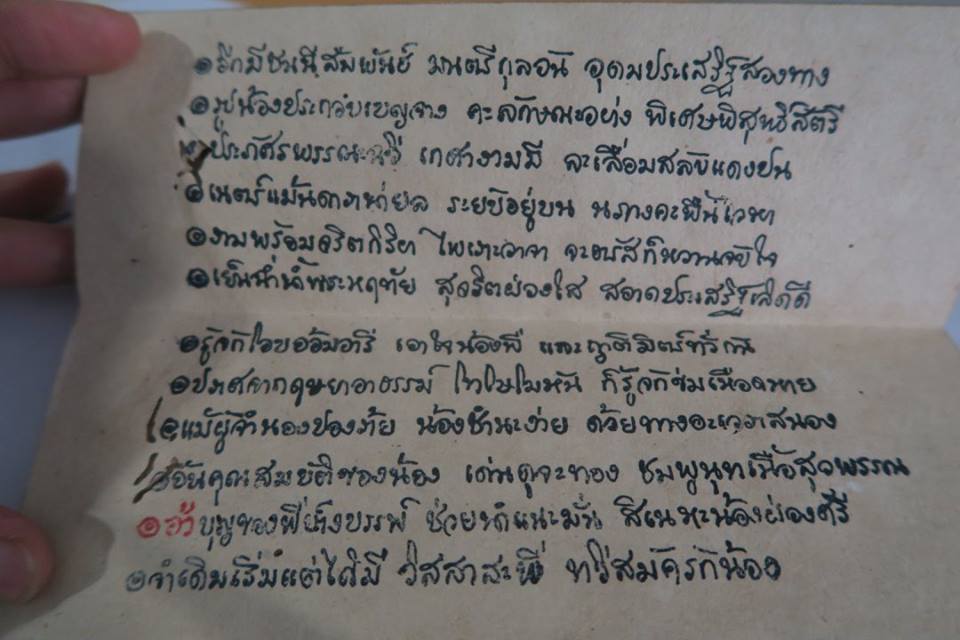 ๏รักมีชนนีสัมพันธ์ มนตรีกุลอนั อุดมประเสริฐสองทาง
๏รูปน้องประกวบเบญจาง คะลักษณะอย่าง พิเศษพิสุทธิสัตรี
๏ประภัศรพรรณะฉวี เกศางามมี ละเลื่อมสลับแดงปน
๏เนตร์แม้นดารา ระยับอยู่บน นะภางคะพื้นเวหา
๏งามพร้อมจริตกิริยา ไพเราะวาจา จะตรัสก็หวานจับใจ
๏เย็นฉ่ำน้ำพระหฤทัย สุจริตผ่องใส สอาดประเสริฐเลิดดี
๏รู้จักโอบอ้อมอารี เอาใจน้องพี่ และญาติมิตร์ทั่วกัน
๏ปราศจากฤษยาอาธรรม์ โทโษโมหัน ก็รู้จักข่มเหือดหาย
๏แม้ผู้จำนองปองภัย น้องชำนะง่าย ด้วยทางอะเวราสนอง
๏อันคุณสมบัติของน้อง เด่นดุจะทอง ชมพูนุทเนื้อสุวพรรณ
๏อ้าบุญของพี่ปางบรรพ์ ช่วยนำแนะมั่น สิเนหะน้องผ่องศรี
๏จำเดิมเริ่มแต่ได้มี วิสสาสะพี่ ทวีสมัครักน้อง